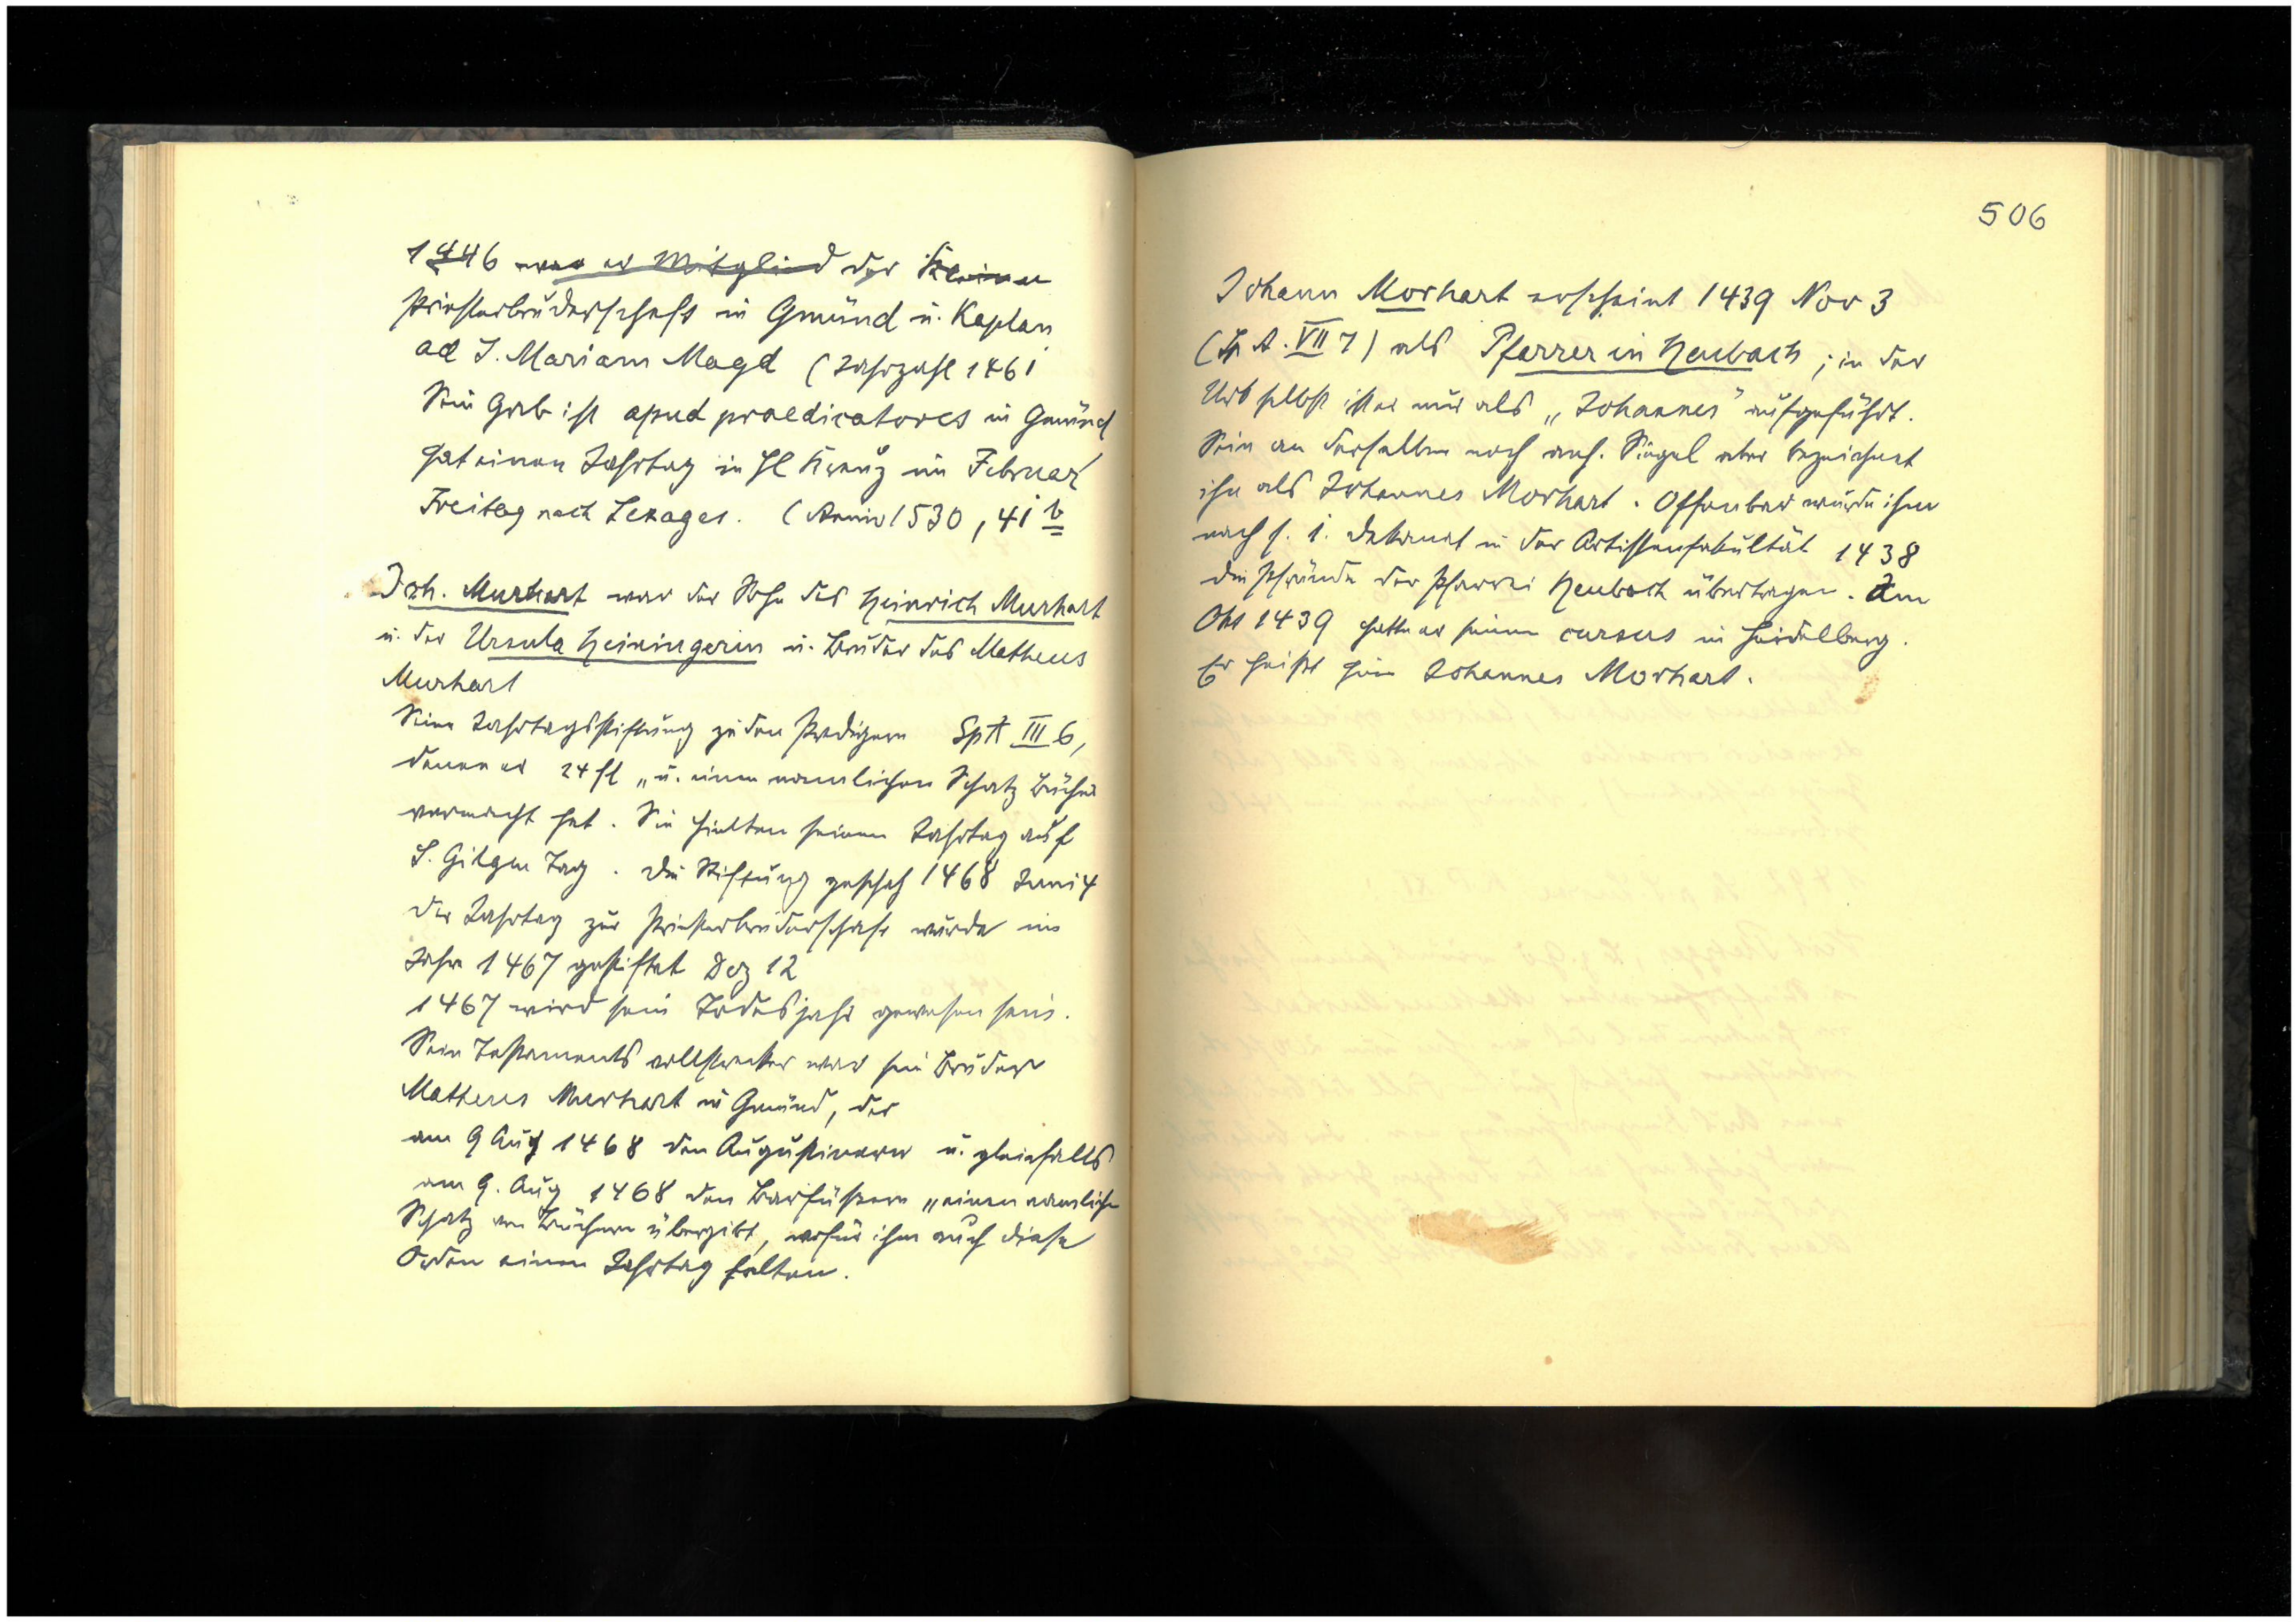 1446 war er Mitglied der Kleinen
Priesterbruderschaft in Gmünd u. Kaplan
ad S. Mariam Magd (Jahrzahl 1461
Sein Grab ist apud praedicatores in Gmünd
hat einen Jahrtag in Hl Kreuz im Februar
Freitag nach (Anniv 1530, 41 b
Joh. Murhart war der Sohn des Heinrich Murhart
u. der Ursula Heiningerin u. Bruder des Matheus
Murhart
Seine Jahrtagsstiftung zu den Predigern Sp A III 6,
denen er 24 fl „u. einen namlichen Schatz Bücher
vermacht hat. Sie hielten seinen Jahrtag auf
S. Gilgen Tag. Die Stiftung geschah 1468 Juni 4
Der Jahrtag zur Priesterbruderschaft wurde im
Jahre 1467 gestiftet Dez 12
1467 wird sein Todesjahr gewesen sein.
Sein Testamentsvollstrecker war sein Bruder
Matheus Murhart in Gmünd, der
am 9 Aug 1468 den Augustinern u. gleichfalls
am 9. Aug 1468 den Barfüssern „einen namliche
Schatz von Büchern übergibt, wofür ihm auch diese
Orden einen Jahrtag halten.
506
Johann Morhart erscheint 1439 Nov 3
(Sp A. VII 7) als Pfarrer in Heubach; in der
Urk selbst ist er nur als „Johannes" aufgeführt.
Sein an derselben noch anh. Siegel aber bezeichnet
ihn als Johannes Morhart. Offenbar wurde ihm
nach s. 1. Dekanat in der Artistenfakultät 1438
die Pfründe der Pfarrei Heubach übertragen. Im
Okt 1439 hatte er seinen cursus in Heidelberg.
Er heißt hier Johannes Morhart.